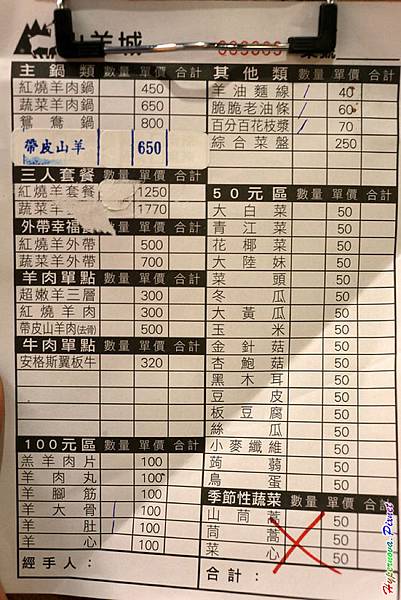 山羊城
主鍋類 數量 單價 合計
紅燒羊肉鍋 450
蔬菜羊肉鍋 650
鴛鴦鍋 800
帶皮山羊 650
三人套餐 數量 單價 合計
紅燒羊套餐 1250
蔬菜羊 1770
外帶幸福 數量 單價 合計
紅燒羊外帶 500
蔬菜羊外帶 700
羊肉單點 數量 單價 合計
超嫩羊三層 300
紅燒羊肉 300
帶皮山羊肉(去骨) 500
牛肉單點 數量 單價 合計
安格斯翼板牛 320
100元區 數量 單價 合計
羔羊肉片 100
羊肉丸 100
羊腳筋 100
羊大骨 / 100
羊肚 100
羊心 100
經手人：
其他類 數量 單價 合計
羊油麵線 / 40
脆脆老油條 / 60
百分百花枝漿 / 70
綜合菜盤 250
50元區 數量 單價 合計
大白菜 50
青江菜 50
花椰菜 50
大陸妹 50
菜頭 50
冬瓜 50
大黃瓜 50
玉米 50
金針菇 50
杏鮑菇 50
黑木耳 50
豆皮 50
板豆腐 50
絲瓜 50
小麥纖維 50
蒟蒻 50
鳥蛋 50
季節性蔬菜 數量 單價 合計
山茼蒿 50
茼蒿 50
菜心 50
合計：
Hypernova.Pixnet